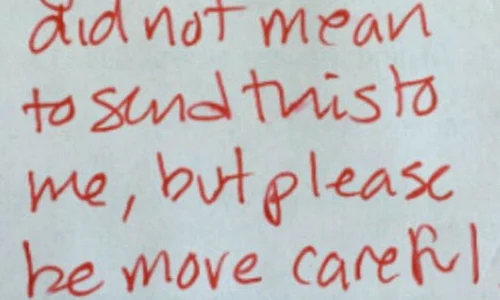 did not mean
to send this to
me, but please
be more careful